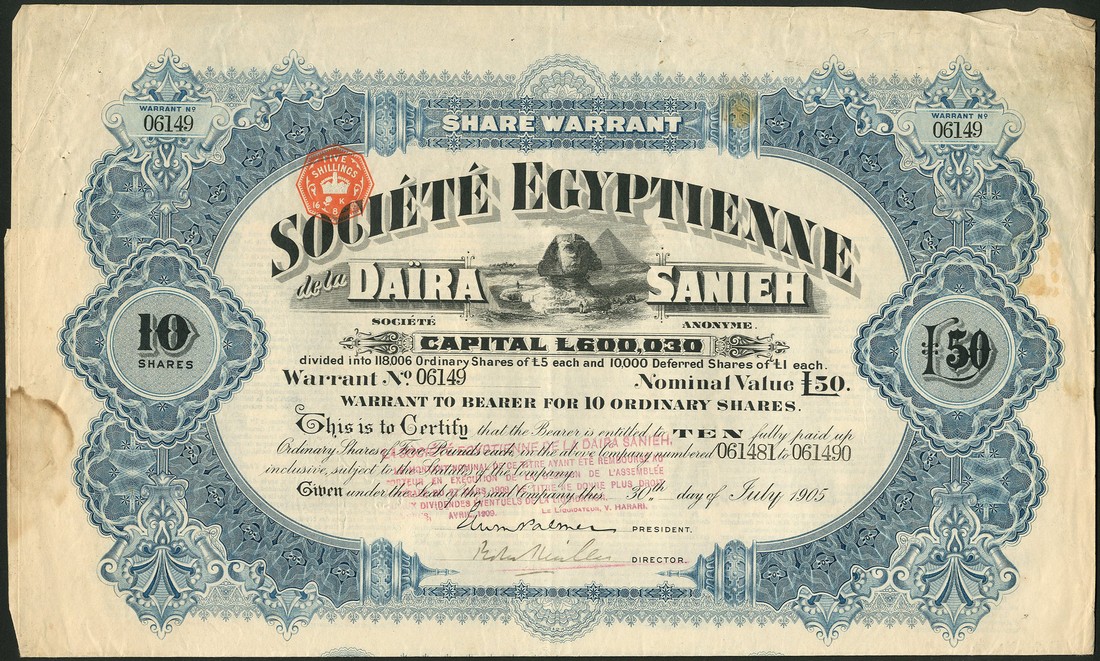 SHARE WARRANT
WARRANT Nº
06149
WARRANT Nº
06149
FIVE SHILLINGS
SOCIÉTÉ EGYPTIENNE
de la DAÏRA SANIEH
SOCIÉTÉ ANONYME.
CAPITAL £600,030
divided into 118,006 Ordinary Shares of £5 each and 10,000 Deferred Shares of £1 each.
10
SHARES
£50
Warrant Nº 06149 Nominal Value £50.
WARRANT TO BEARER FOR 10 ORDINARY SHARES.
This is to Certify that the Bearer is entitled to TEN fully paid up
Ordinary Shares of Five Pounds each in the above Company numbered 061481 to 061490
inclusive, subject to the Statutes of the Company.
Given under the Seal of the said Company this 30th day of July 1905
SOCIÉTÉ EGYPTIENNE DE LA DAIRA SANIEH,
NOMINAL DE CE TITRE AYANT ÉTÉ REMBOURSÉ AU
PORTEUR EN EXÉCUTION DE LA DÉCISION DE L'ASSEMBLÉE
1909 TITRE NE DONNE PLUS DROIT
DIVIDENDES ÉVENTUELS DE LA
AVRIL 1909. LE LIQUIDATEUR, V. HARARI.
PRESIDENT.
DIRECTOR.